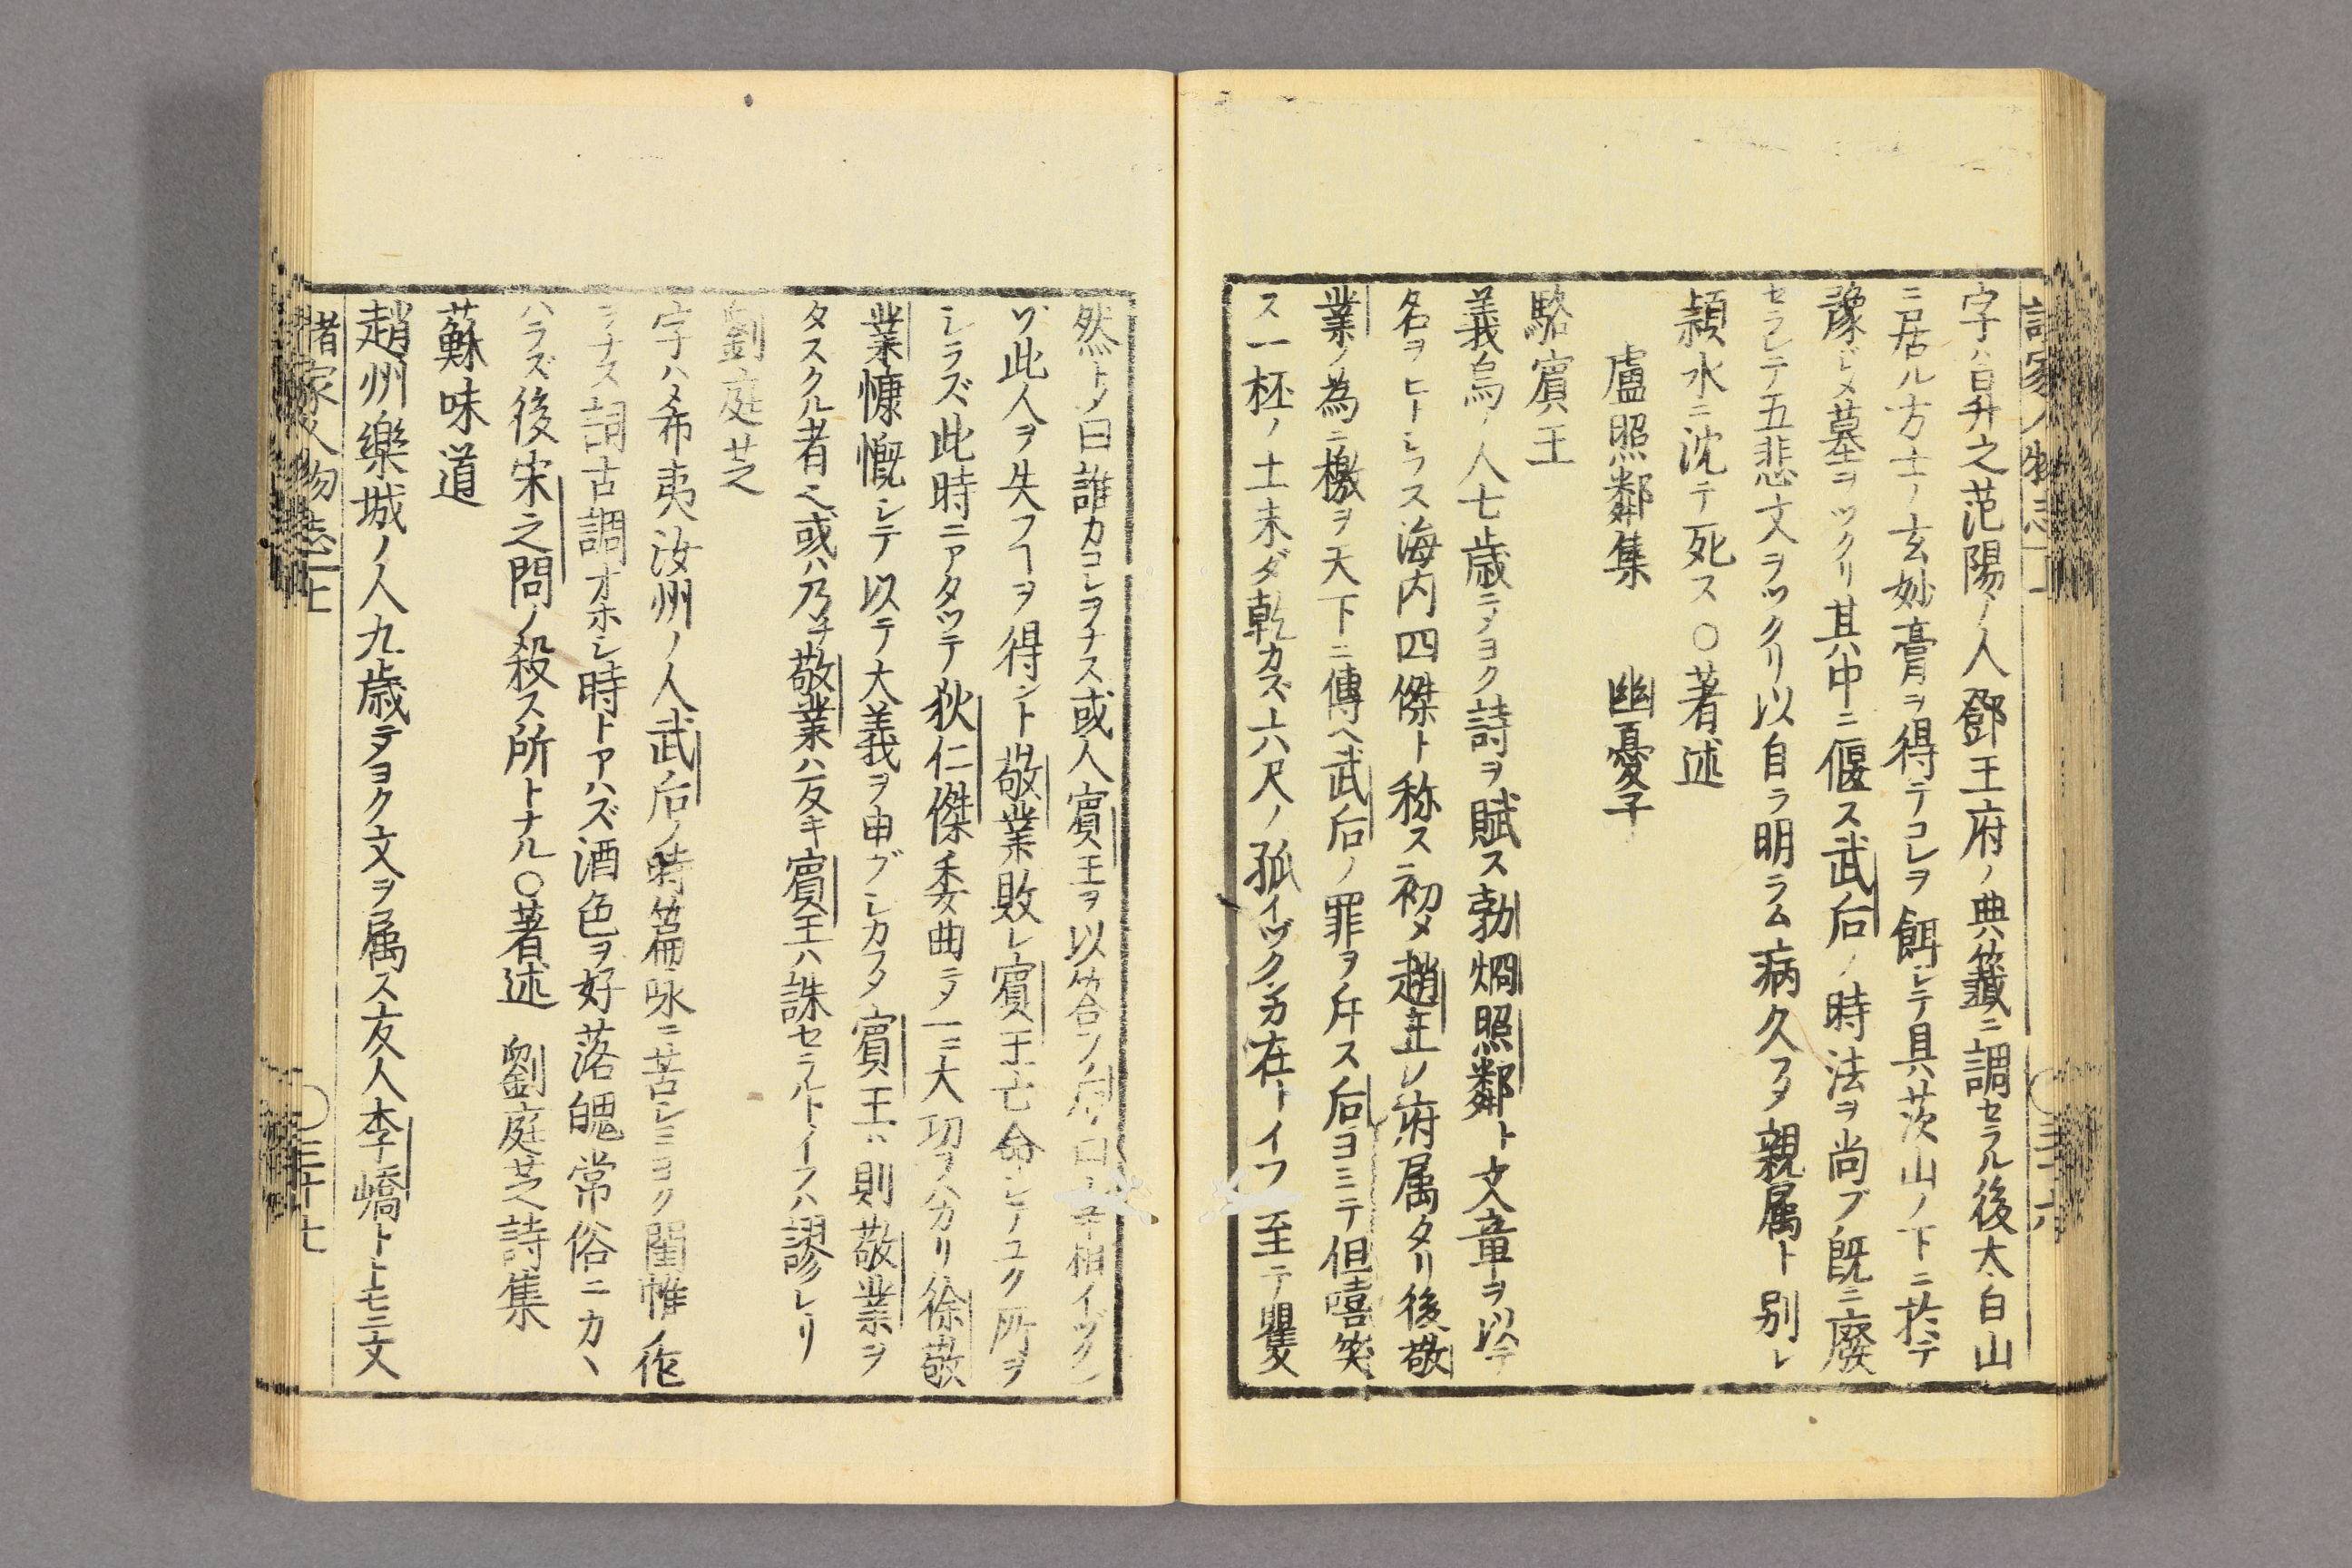 字ハ昇之范陽ノ人鄧王府ノ典籤ニ調セラル後太白山
ニ居ル方士ノ玄妙膏ヲ得テコレヲ餌シテ具茨山ノ下ニ於テ
豫ジメ墓ヲツクリ其中ニ偃ス武后ノ時法ヲ尚ブ既ニ廢
セラレテ五悲文ヲツクリ以自ラ明ラム病久フメ親属ト別レ
潁水ニ沈テ死ス〇著述
盧照鄰集 幽憂子
駱賓王
義烏ノ人七歳ニメヨク詩ヲ賦ス勃烱照鄰ト文章ヲ以テ
名ヲヒトシフス海内四傑ト称ス初メ趙王ノ府属タリ後敬
業ノ為ニ檄ヲ天下ニ傳ヘ武后ノ罪ヲ斥ス后ヨミテ但嘻笑
ス一杯ノ土未ダ乾カズ六尺ノ孤イヅクンカ在トイフ至テ矍
然トメ曰誰カコレヲナス或人賓王ヲ以答フ后ノ曰宰相イヅクン
ゾ此人ヲ失フヿヲ得ント敬業敗レ賓王亡命シテユク所ヲ
シラズ此時ニアタツテ狄仁傑委曲ニメ一ニ大功ヲハカリ徐敬
業慷慨シテ以テ大義ヲ申ブシカフメ賓王ハ則敬業ヲ
タスクル者也或ハ乃チ敬業ハ友キ賓王ハ誅セラルトイフハ謬レリ
劉庭芝
字ハ希夷汝州ノ人武后ノ時篇咏ニ苦シミヨク閨帷ノ作
ヲナス詞古調オホシ時トアハズ酒色ヲ好落魄常俗ニカヽ
ハラズ後宋之問ノ殺ス所トナル〇著述 劉庭芝詩集
蘇味道
趙州樂城ノ人九歳テヨク文ヲ属ス友人李嶠トトモニ文
諸家人物志 上
〇三十七